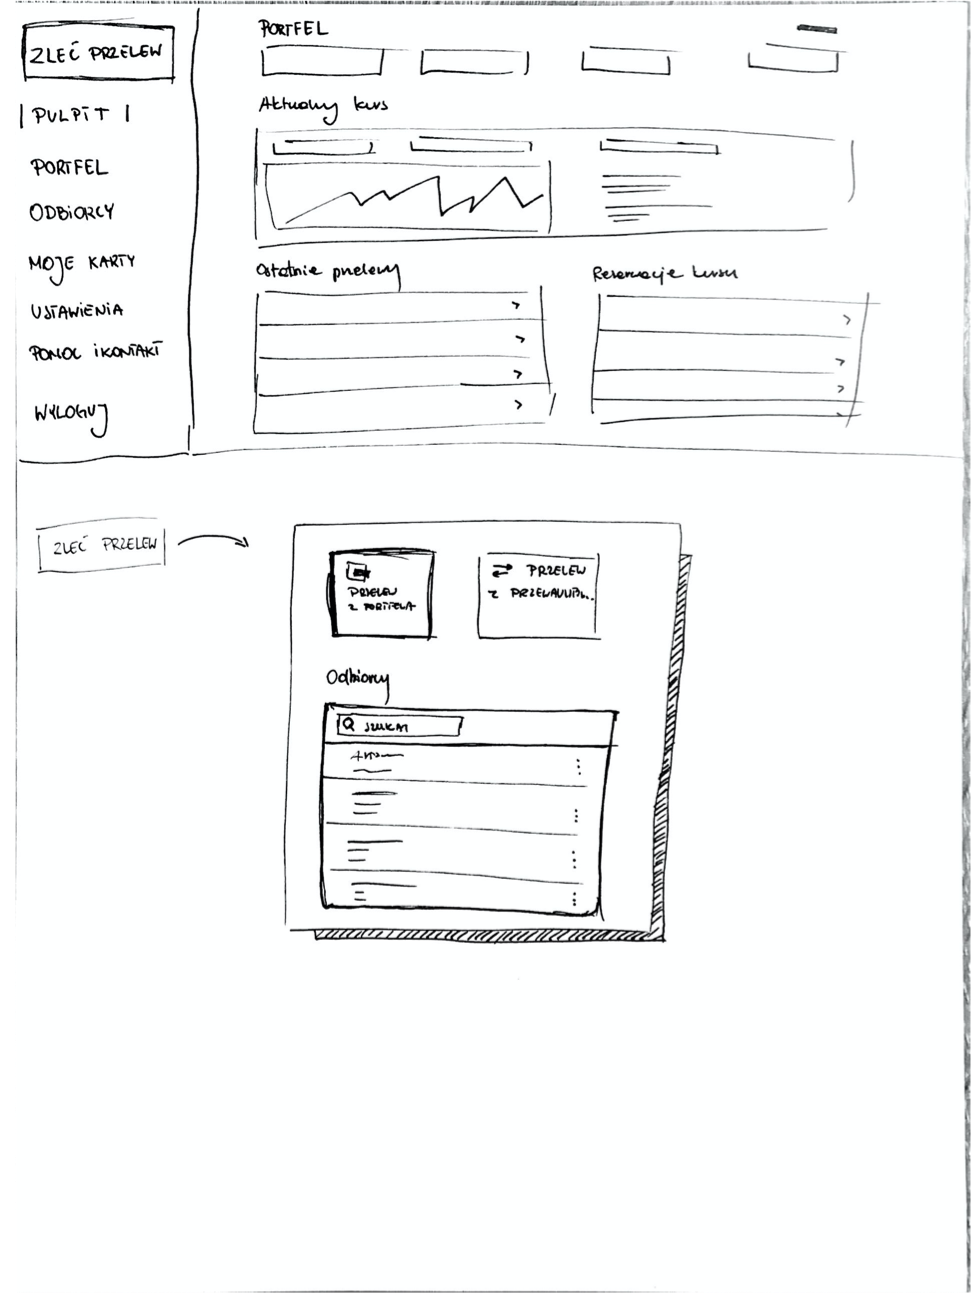 ZLEĆ PRZELEW
PULPIT
PORTFEL
ODBIORCY
MOJE KARTY
USTAWIENIA
POMOC I KONTAKT
WYLOGUJ
PORTFEL
Aktualny kurs
Ostatnie przelewy
Rezerwacje kursu
ZLEĆ PRZELEW
PRZELEW
Z PORTFELA
PRZELEW
Z
Odbiorcy
SZUKAJ